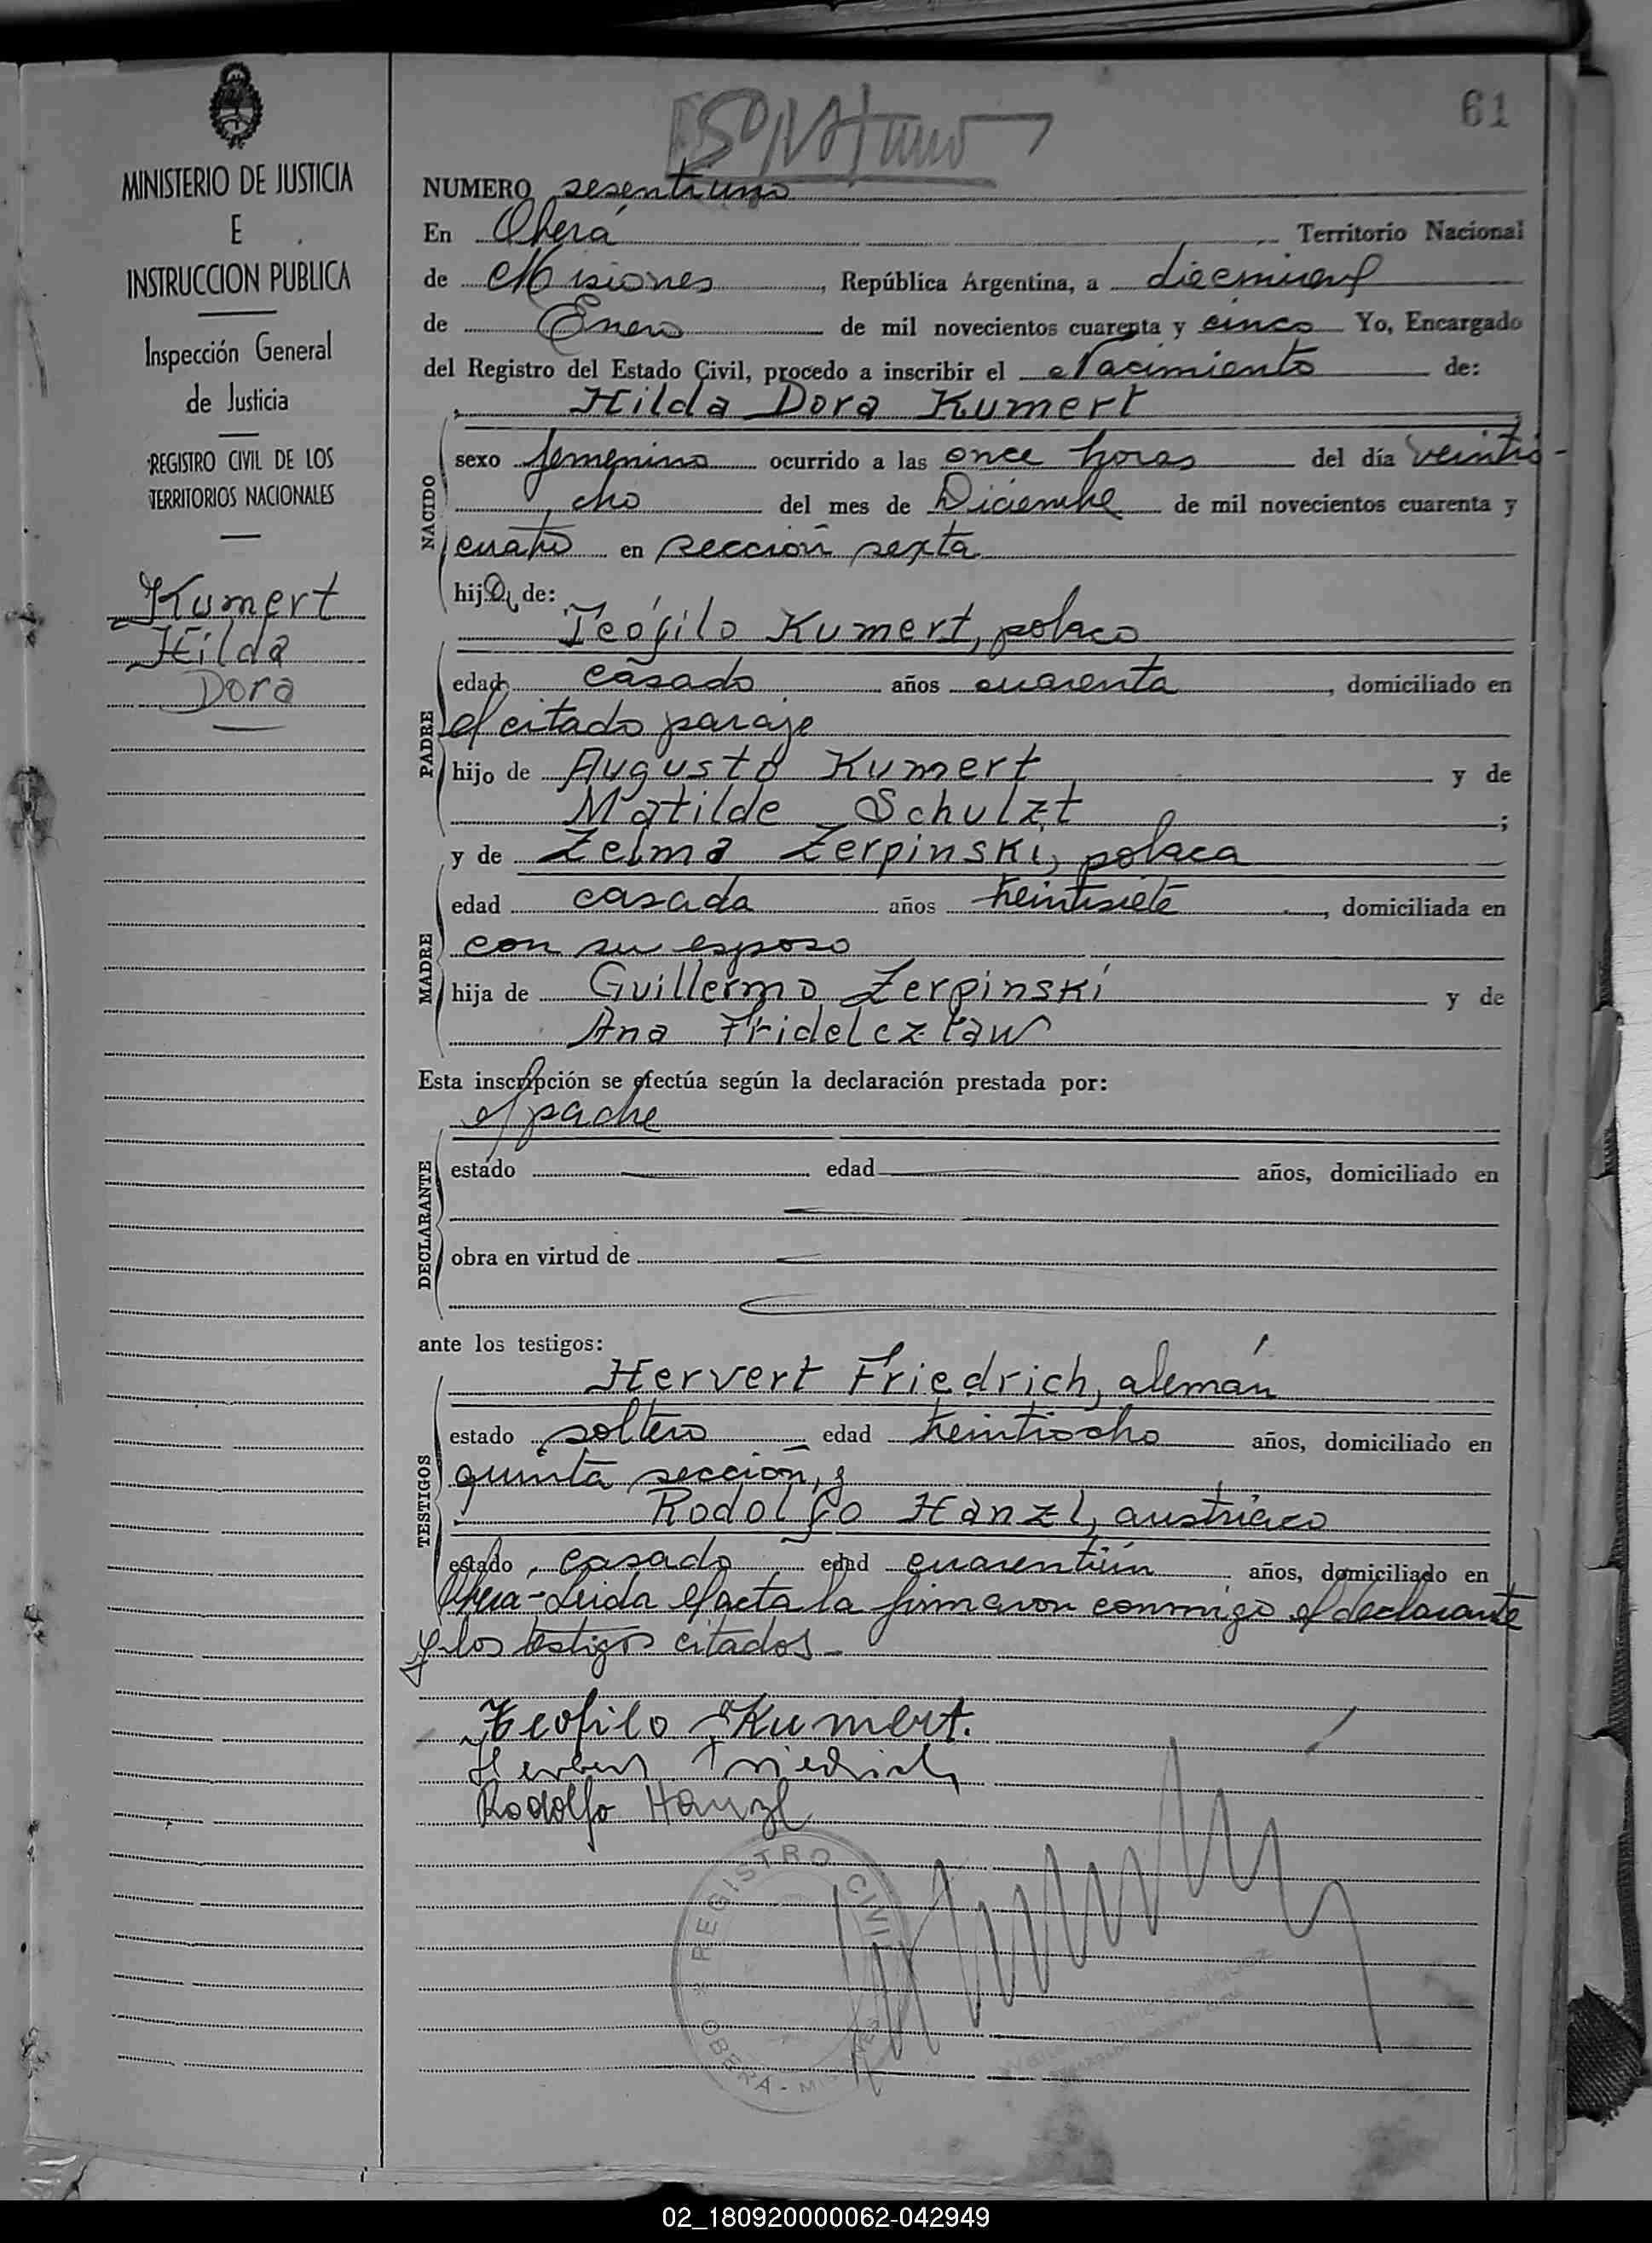 61
NUMERO sesentiuno
MINISTERIO DE JUSTICIA
E
INSTRUCCION PUBLICA
Inspección General
de Justicia
REGISTRO CIVIL DE LOS
TERRITORIOS NACIONALES
Kumert
Hilda
Dora
En Oberá Territorio Nacional
de Misiones, República Argentina, a diecinueve
de Enero de mil novecientos cuarenta y cinco Yo, Encargado
del Registro del Estado Civil, procedo a inscribir el Nacimiento de:
Hilda Dora Kumert
NACIDO
sexo femenino ocurrido a las once horas del día veintio-
cho del mes de Diciembre de mil novecientos cuarenta y
cuatro en sección sexta
hija de:
Teófilo Kumert, polaco
PADRE
edad casado años cuarenta, domiciliado en
el citado paraje
hijo de Augusto Kumert y de
Matilde Schulzt;
y de Zelma Zerpinski, polaca
MADRE
edad casada años treintisiete, domiciliada en
con su esposo
hija de Guillermo Zerpinski y de
Ana Fridelczlaw
Esta inscripción se efectúa según la declaración prestada por:
el padre
DECLARANTE
estado edad años, domiciliado en
obra en virtud de
ante los testigos:
Hervert Friedrich, alemán
TESTIGOS
estado soltero edad treintiocho años, domiciliado en
quinta sección, y
Rodolfo Hanzl, austriaco
estado casado edad cuarentiún años, domiciliado en
Obera-Leida el acta la firmaron conmigo el declarante
y los testigos citados-
Teofilo Kumert.
Herbert Friedrich
Rodolfo Hanzl
REGISTRO CIVIL
OBERA - MISIONES
02_180920000062-042949